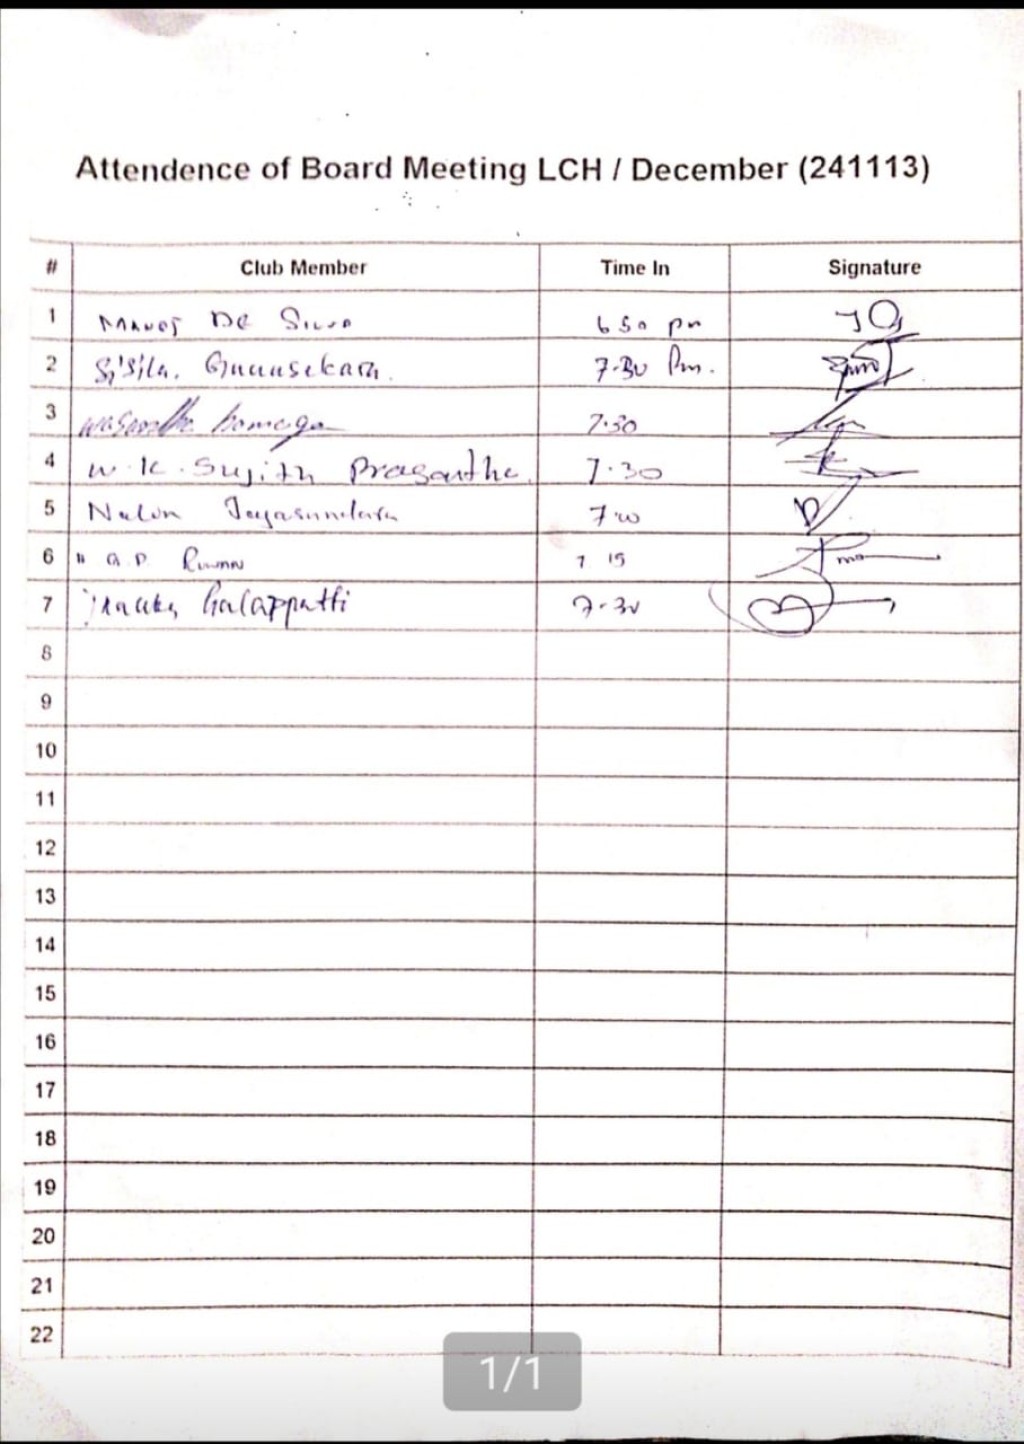 Attendence of Board Meeting LCH / December (241113)
# Club Member Time In Signature
1 Manoj De Silva 6 50 pm
2 Sisila. Gunasekara. 7.30 Pm.
3 7.30
4 W.K. Sujith Prasantha 7.30
5 Nalin Jayasundara 7.00
6 G.P. 7 15
7 Galappatti 7.30
8
9
10
11
12
13
14
15
16
17
18
19
20
21
22
1/1